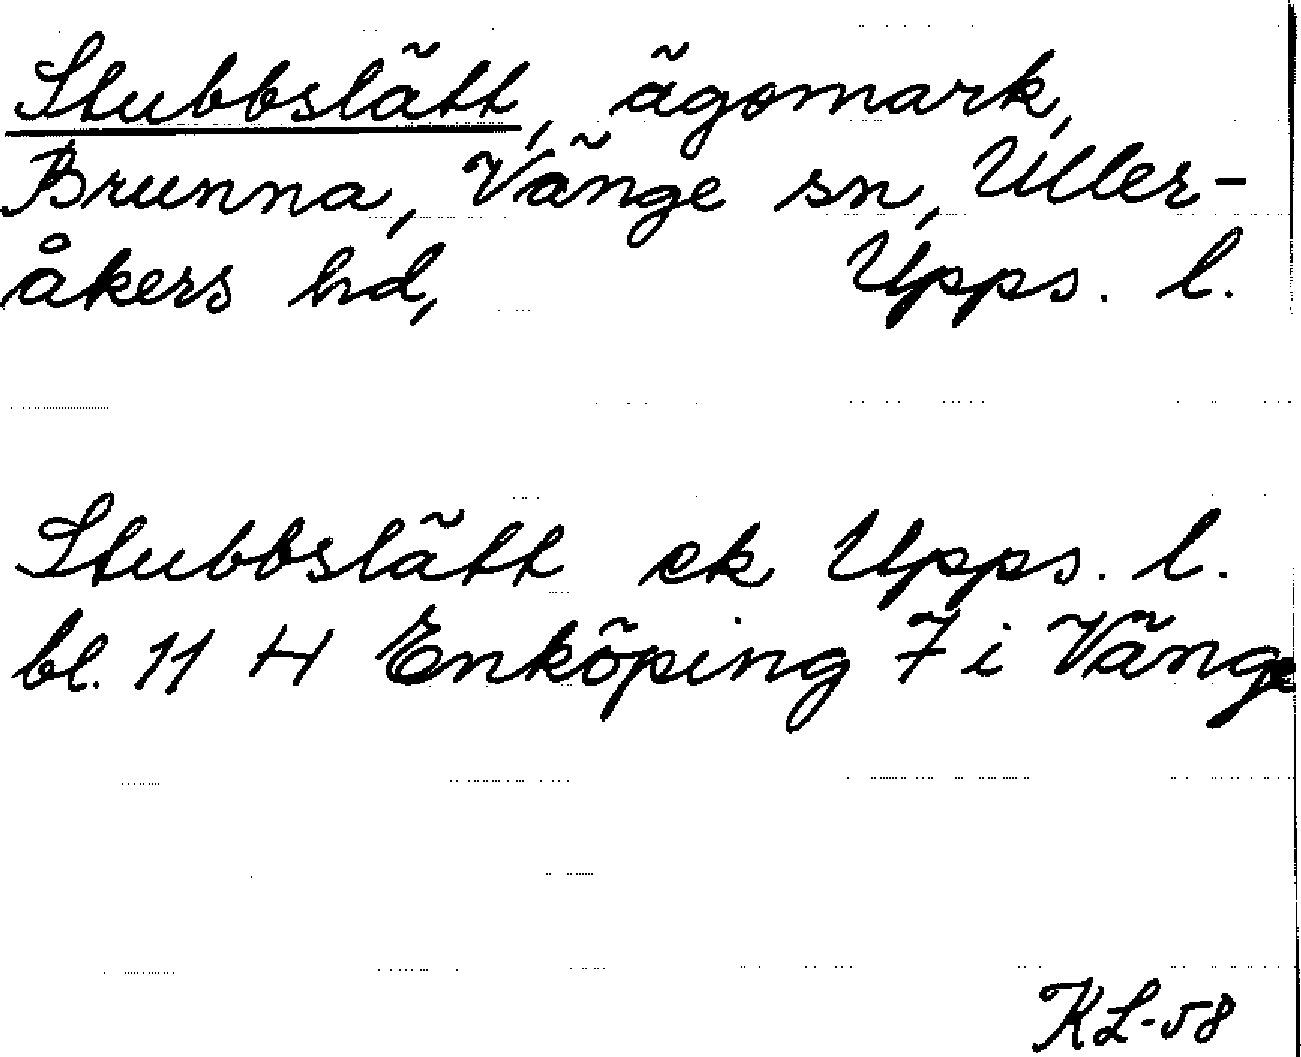 Stubbslätt, ägomark,
Brunna, Vänge sn, Uller-
åkers hd, Upps. l.
Stubbslätt ek Upps. l.
bl. 11 H Enköping 7 i Vänge
KL-58